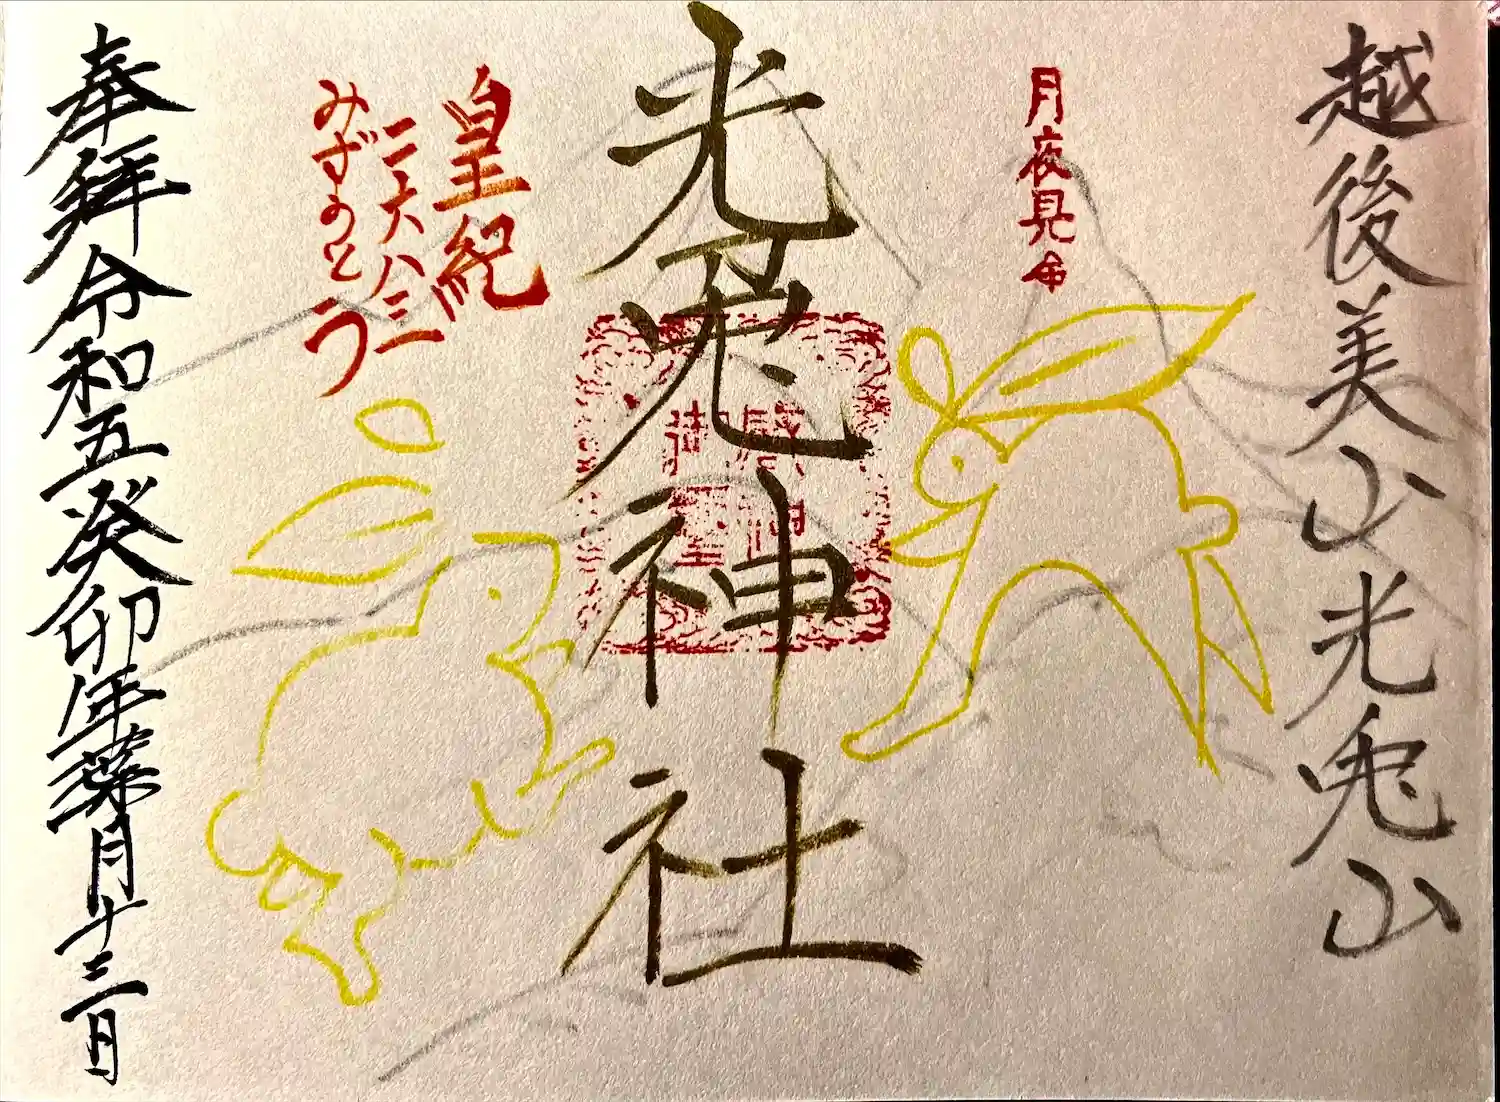 越後美山光兎山
月夜見命
光兎神社
皇紀
二六八三
みずのとう
奉拜令和五癸卯年葉月十三日